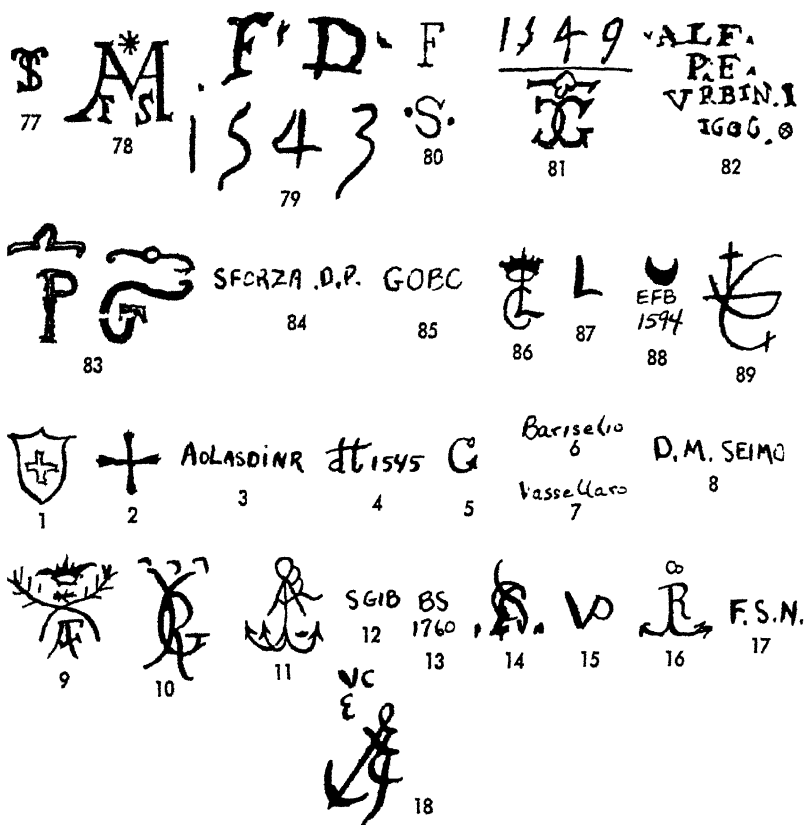 TS
77
M
T S
78
F D
1543
79
F
.S.
80
1549
G
81
ALF.
P.E.
VRBIN.I
82
P
83
SFORZA .D.P.
84
GOBC
85
CL
86
L
87
EFB
1594
88
89
1
2
AOLASDINR
3
1545
4
G
5
Bariselio
6
Vassellaro
7
D. M. SEIMO
8
9
10
11
SGIB
12
BS
1760
13
14
VP
15
R
16
F.S.N.
17
VC
18